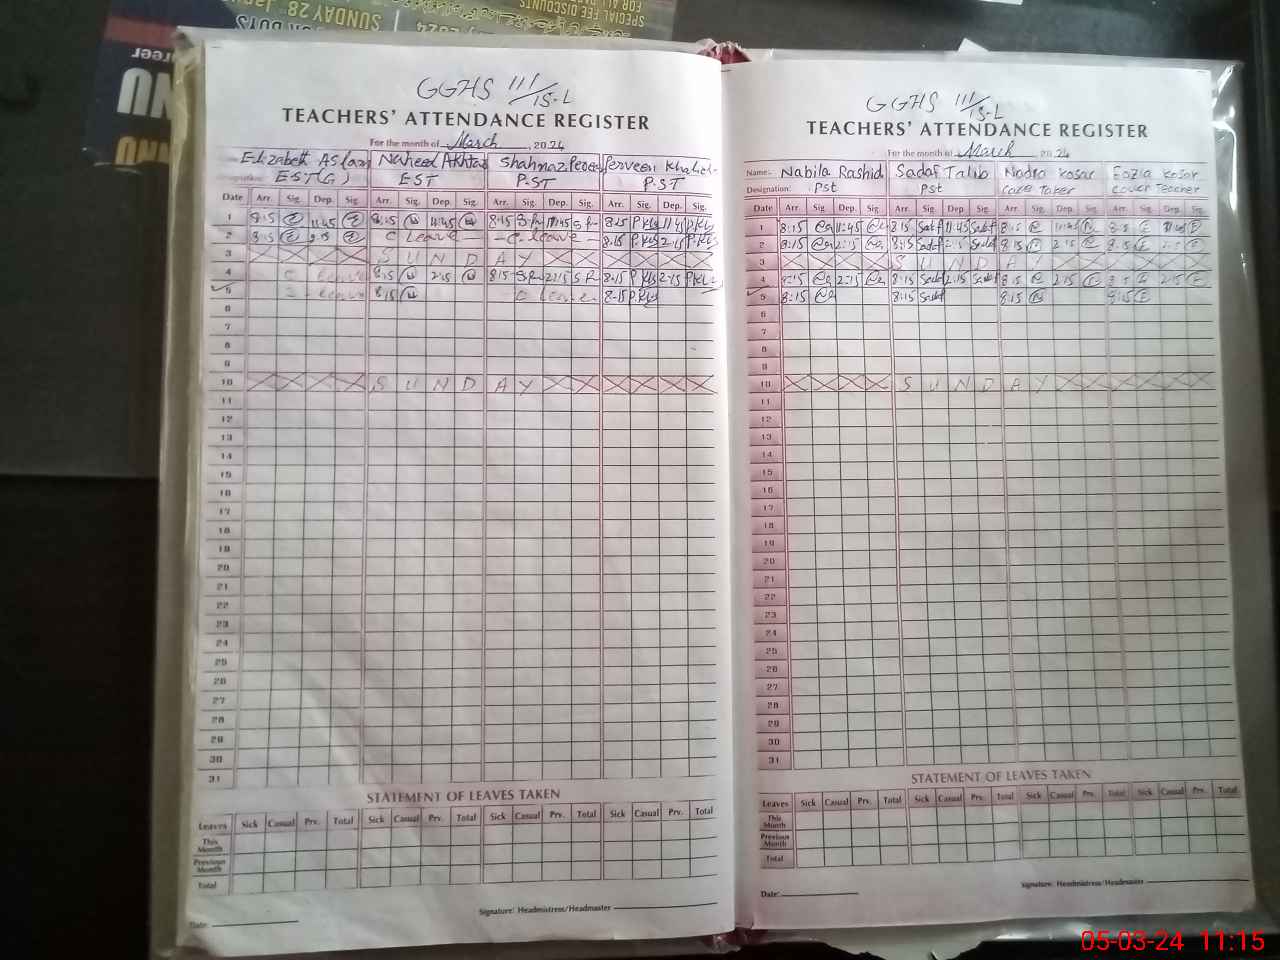 SPECIAL FEE DISCOUNTS
SUNDAY 28
2024
NU
GGHS 111/15-L
TEACHERS' ATTENDANCE REGISTER
For the month of March, 2024
Elizabeth Aslam Naheed Akhtar Shahnaz Perveen Khalid
EST(G) EST P.ST P.ST
Date Arr. Sig. Dep. Sig. Arr. Sig. Dep. Sig. Arr. Sig. Dep. Sig. Arr. Sig. Dep. Sig.
1 8:15 11:45 8:15 11:45 8:15 11:45 8:15 11:45
2 8:15 2:15 C leave C. leave 8.15 2:15
3 S U N D A Y
4 C leave 8:15 2:15 8:15 2:15 8:15 2:15
5 leave 8:15 C leave 8-15
6
7
8
9
10 S U N D A Y
11
12
13
14
15
16
17
18
19
20
21
22
23
24
25
26
27
28
29
30
31
STATEMENT OF LEAVES TAKEN
Leaves Sick Casual Prv. Total Sick Casual Prv. Total Sick Casual Prv. Total Sick Casual Prv. Total
This Month
Previous Month
Total
Signature: Headmistress/Headmaster
Date:
GGHS 111/15-L
TEACHERS' ATTENDANCE REGISTER
For the month of March, 2024
Name: Nabila Rashid Sadaf Talib Nadra Kosar Fozia Kosar
Designation: Pst Pst Care Taker Cover Teacher
Date Arr. Sig. Dep. Sig. Arr. Sig. Dep. Sig. Arr. Sig. Dep. Sig. Arr. Sig. Dep. Sig.
1 8:15 11:45 8:15 Sadf 11:45 Sadf 8:15 11:45 8:15 11:45
2 8:15 2:15 8:15 Sadf 2:15 Sadf 8:15 2:15 8:15 2:15
3 S U N D A Y
4 8:15 2:15 8:15 Sadf 2:15 Sadf 8:15 2:15 8:15 2:15
5 8:15 8:15 Sadf 8:15 8:15
6
7
8
9
10 S U N D A Y
11
12
13
14
15
16
17
18
19
20
21
22
23
24
25
26
27
28
29
30
31
STATEMENT OF LEAVES TAKEN
Leaves Sick Casual Prv. Total Sick Casual Prv. Total Sick Casual Prv. Total Sick Casual Prv. Total
This Month
Previous Month
Total
Signature: Headmistress/Headmaster
Date:
05-03-24 11:15